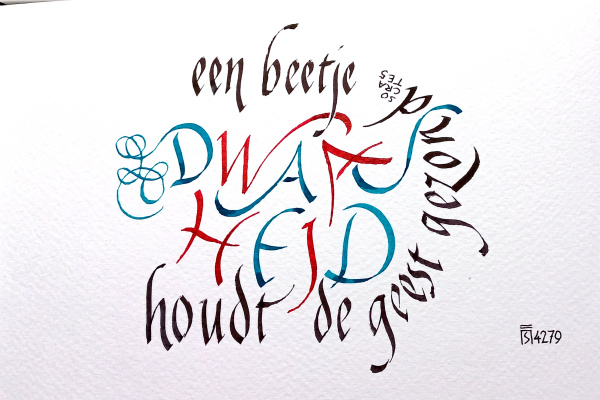 een beetje
DWARS
HEJD
houdt de geest gezond
SO
CRA
TES
4279